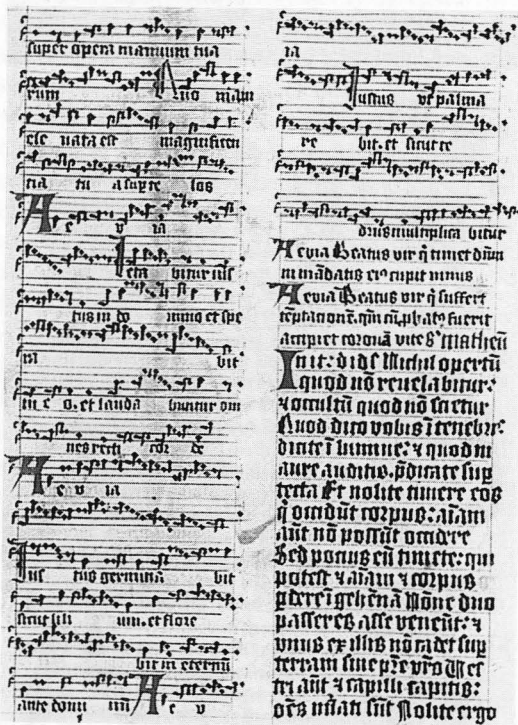 super opera manuum tua
rum Quo niam
ele uata est magnificen
tia tu a super ce los
Ae v ia
Leta bitur ius
tus in do mino et spe
ra bit
in e o. et lauda buntur om
nes recti cor de
Ae v ia
Ius tus germina bit
sicut lili um. et flore
bit in eternū
ante domi nū Ae v
ia
Iustus vt palma
re bit. et sicut ce
drus multiplica bitur
Aevia Beatus vir q̄ timet dn̄m
in mādatis ei⁹ cupit nimis
Aevia Beatus vir q̄ suffert
tēptationē. qm̄ cū. ꝓbat⁹ fuerit
accipiet coronā vite S matheū
In it: did S Nichil opertū
quod nō reuelabitur:
⁊ occultū quod nō scietur
Quod dico vobis ī tenebris
dicite ī lumine: ⁊ quod in
aure auditis. p̄dicate sup
tecta Et nolite timere eos
q̄ occidūt corpus: aīam
aūt nō possūt occidere
Sed potius eū timete: qui
potest ⁊ aīam ⁊ corpus
ꝑdere ī gehēnā Nōne duo
passeres asse veneūt: ⁊
vnus ex illis nō cadet sup
terram sine pr̄e vr̄o Vr̄i
aūt ⁊ capilli capitis:
oēs nūati sūt Nolite ergo